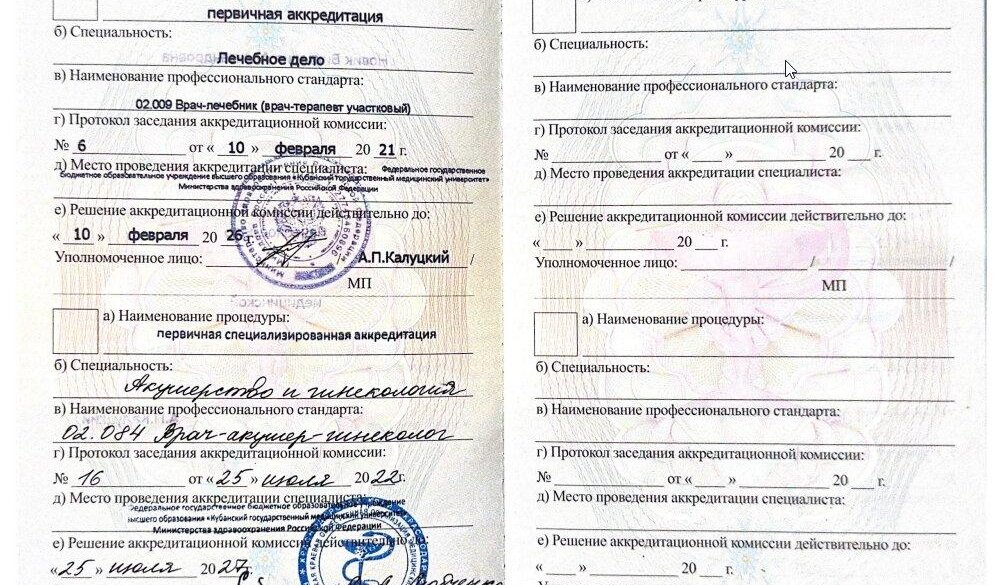 первичная аккредитация
б) Специальность:
Лечебное дело
в) Наименование профессионального стандарта:
02.009 Врач-лечебник (врач-терапевт участковый)
г) Протокол заседания аккредитационной комиссии:
№ 6 от « 10 » февраля 20 21 г.
д) Место проведения аккредитации специалиста: Федеральное государственное
бюджетное образовательное учреждение высшего образования «Кубанский государственный медицинский университет»
Министерства здравоохранения Российской Федерации
е) Решение аккредитационной комиссии действительно до:
« 10 » февраля 20 26 г.
Уполномоченное лицо: / А.П.Калуцкий /
МП
а) Наименование процедуры:
первичная специализированная аккредитация
б) Специальность:
Акушерство и гинекология
в) Наименование профессионального стандарта:
02.084 Врач-акушер-гинеколог
г) Протокол заседания аккредитационной комиссии:
№ 16 от «25» июля 2022г.
д) Место проведения аккредитации специалиста:
Федеральное государственное бюджетное образовательное учреждение
высшего образования «Кубанский государственный медицинский университет»
Министерства здравоохранения Российской Федерации
е) Решение аккредитационной комиссии действительно до:
«25» июля 2027г.
б) Специальность:
в) Наименование профессионального стандарта:
г) Протокол заседания аккредитационной комиссии:
№ от « » 20 г.
д) Место проведения аккредитации специалиста:
е) Решение аккредитационной комиссии действительно до:
« » 20 г.
Уполномоченное лицо: / /
МП
а) Наименование процедуры:
б) Специальность:
в) Наименование профессионального стандарта:
г) Протокол заседания аккредитационной комиссии:
№ от « » 20 г.
д) Место проведения аккредитации специалиста:
е) Решение аккредитационной комиссии действительно до:
« » 20 г.